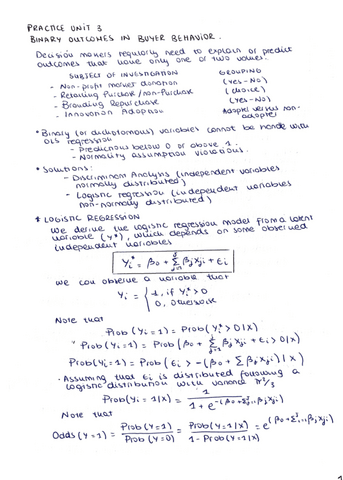 PRACTICE UNIT 3
BINARY OUTCOMES IN BUYER BEHAVIOR.
Decision makers regularly need to explain or predict
outcomes that have only one or two values.
SUBJECT OF INVESTIGATION GROUPING
- Non-profit market donation (Yes-No)
- Retailing Purchase/non-Purchase (choice)
- Branding Repurchase (Yes-No)
- Innovation Adoption Adopter versus non-
adopter
* Binary (or dichotomous) variables cannot be made with
OLS regression
- Predictions below 0 or above 1.
- Normality assumption violations.
* Solutions:
- Discriminant Analysis (independent variables
normally distributed)
- Logistic regression (independent variables
non-normally distributed)
* LOGISTIC REGRESSION
We derive the logistic regression model from a latent
variable (Y*), which depends on some observed
independent variables
Yi* = β0 + Σ βj xji + εi
we can observe a variable that
Yi = { 1, if Yi* > 0
0, otherwise
Note that
Prob (Yi = 1) = Prob (Yi* > 0 | X)
Prob (Yi = 1) = Prob (β0 + Σ βj xji + εi > 0 | X)
Prob (Yi = 1) = Prob (εi > -(β0 + Σ βj xji) | X)
- Assuming that εi is distributed following a
logistic distribution with variance π²/3
Prob (Yi = 1 | X) = 1 / 1 + e^-(β0 + Σ βj xji)
Note that
Odds (Y = 1) = Prob (Y = 1) / Prob (Y = 0) = Prob (Y = 1 | X) / 1 - Prob (Y = 1 | X) = e^(β0 + Σ βj xji)
1